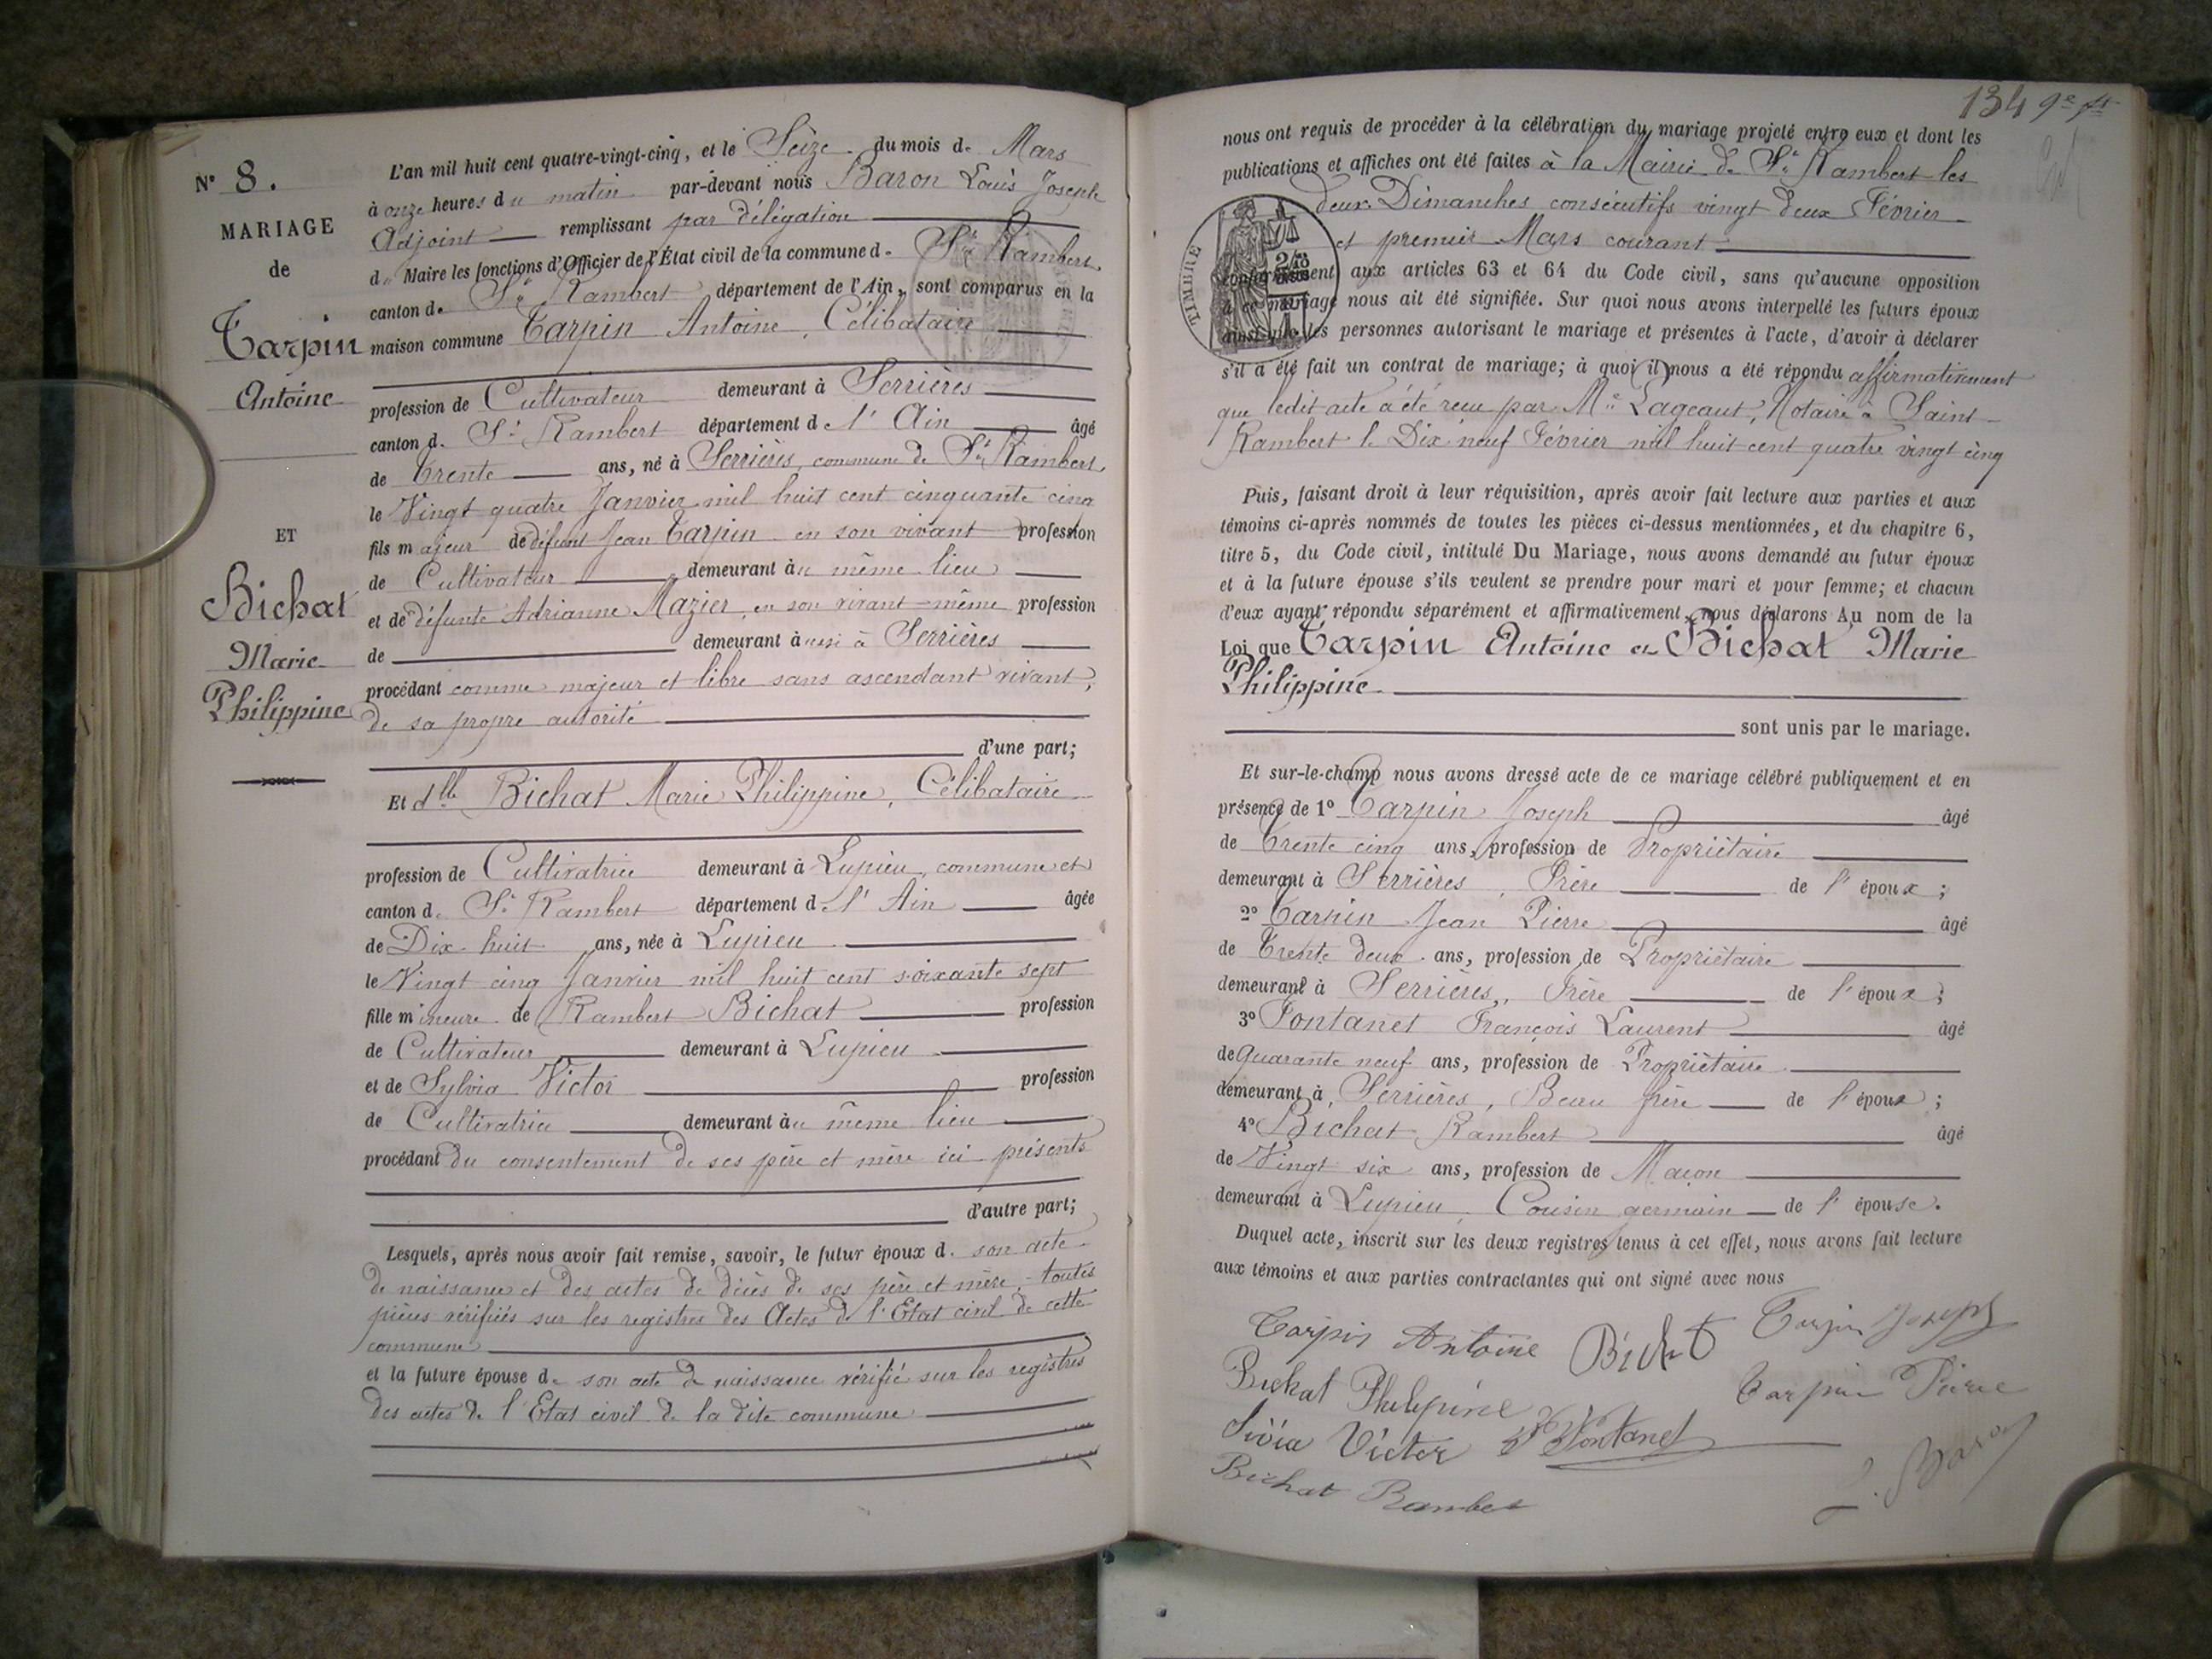 N° 8.
MARIAGE
de
Tarpin
Antoine
ET
Bichat
Marie
Philippine
L'an mil huit cent quatre-vingt-cinq, et le Seize du mois de Mars
à onze heures du matin par-devant nous Baron Louis Joseph
Adjoint remplissant par délégation
du Maire les fonctions d'Officier de l'État civil de la commune de St Rambert
canton de St Rambert département de l'Ain, sont comparus en la
maison commune Tarpin Antoine, Célibataire
profession de Cultivateur demeurant à Serrières
canton de St Rambert département de l'Ain âgé
de trente ans, né à Serrières, commune de St Rambert,
le Vingt quatre Janvier mil huit cent cinquante cinq
fils majeur de défunt Jean Tarpin en son vivant profession
de Cultivateur demeurant au même lieu
et de défunte Adrianne Mazier, en son vivant même profession
de demeurant aussi à Serrières
procédant comme majeur et libre sans ascendant vivant,
de sa propre autorité
d'une part;
Et dlle Bichat Marie Philippine, Célibataire
profession de Cultivatrice demeurant à Lupieu, commune et
canton de St Rambert département de l'Ain âgée
de Dix huit ans, née à Lupieu
le Vingt cinq Janvier mil huit cent soixante sept
fille mineure de Rambert Bichat profession
de Cultivateur demeurant à Lupieu
et de Sylvia Victor profession
de Cultivatrice demeurant au même lieu
procédant du consentement de ses père et mère ici présents
d'autre part;
Lesquels, après nous avoir fait remise, savoir, le futur époux de son acte
de naissance et des actes de décès de ses père et mère, toutes
pièces vérifiées sur les registres des Actes de l'Etat civil de cette
commune
et la future épouse de son acte de naissance vérifié sur les registres
des actes de l'Etat civil de la dite commune
134 9e ft
nous ont requis de procéder à la célébration du mariage projeté entre eux et dont les
publications et affiches ont été faites à la Mairie de St Rambert les
deux Dimanches consécutifs vingt deux Février
et premier Mars courant
TIMBRE
conformément aux articles 63 et 64 du Code civil, sans qu'aucune opposition
à ce mariage nous ait été signifiée. Sur quoi nous avons interpellé les futurs époux
ainsi que les personnes autorisant le mariage et présentes à l'acte, d'avoir à déclarer
s'il a été fait un contrat de mariage; à quoi il nous a été répondu affirmativement
que ledit acte a été reçu par Me Lageaut, Notaire à Saint
Rambert le Dix neuf Février mil huit cent quatre vingt cinq
Puis, faisant droit à leur réquisition, après avoir fait lecture aux parties et aux
témoins ci-après nommés de toutes les pièces ci-dessus mentionnées, et du chapitre 6,
titre 5, du Code civil, intitulé Du Mariage, nous avons demandé au futur époux
et à la future épouse s'ils veulent se prendre pour mari et pour femme; et chacun
d'eux ayant répondu séparément et affirmativement, nous déclarons Au nom de la
Loi que Tarpin Antoine et Bichat Marie
Philippine
sont unis par le mariage.
Et sur-le-champ nous avons dressé acte de ce mariage célébré publiquement et en
présence de 1° Tarpin Joseph âgé
de trente cinq ans, profession de Propriétaire
demeurant à Serrières, Frère de l'époux;
2° Tarpin Jean Pierre âgé
de trente deux ans, profession de Propriétaire
demeurant à Serrières, Frère de l'époux;
3° Fontanet François Laurent âgé
de quarante neuf ans, profession de Propriétaire
demeurant à Serrières, Beau frère de l'époux;
4° Bichat Rambert âgé
de Vingt six ans, profession de Maçon
demeurant à Lupieu, Cousin germain de l'épouse.
Duquel acte, inscrit sur les deux registres tenus à cet effet, nous avons fait lecture
aux témoins et aux parties contractantes qui ont signé avec nous
Tarpin Antoine Bichat Tarpin Joseph
Bichat Philipine Tarpin Pierre
Sivia Victor Fontanet
Bichat Rambert L. Baron